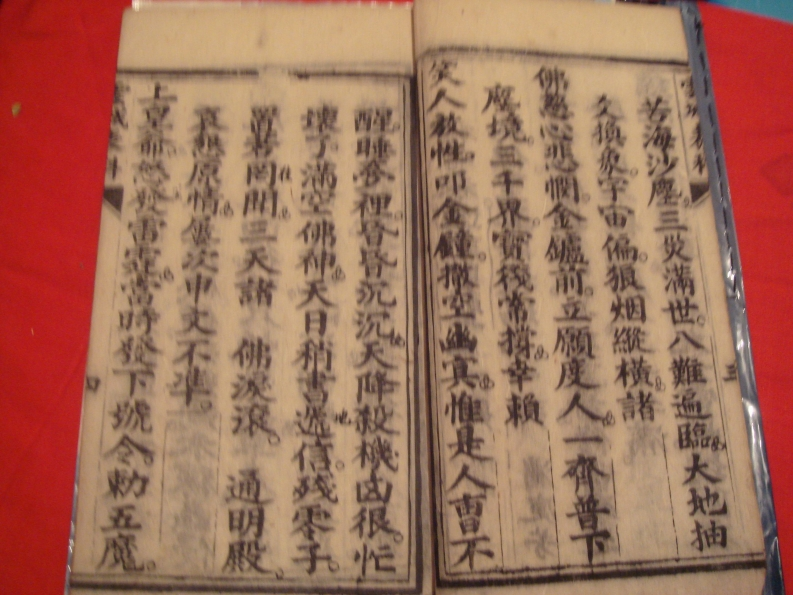 苦海沙塵。三災滿世。八難遍臨。大地抽
爻換象。宇宙偏。狼烟縱橫諸
佛慈心悲憫。金鑪前。立願度人。一齊普下
塵境。三千界。寶筏常撐。幸賴
人放性。叩金鐘。撒空幽冥。惟是人曹不
三
醒。睡夢裡。昏昏沉沉。天降殺機凶很。忙
壞了滿空佛神。天日稍書遞信。殘零子。
若罔聞。三天諸 佛淚滾。 通明殿。
哀懇原情。屢次申文不準。
上皇怒發雷霆。當時發下號令。勅五魔。
四